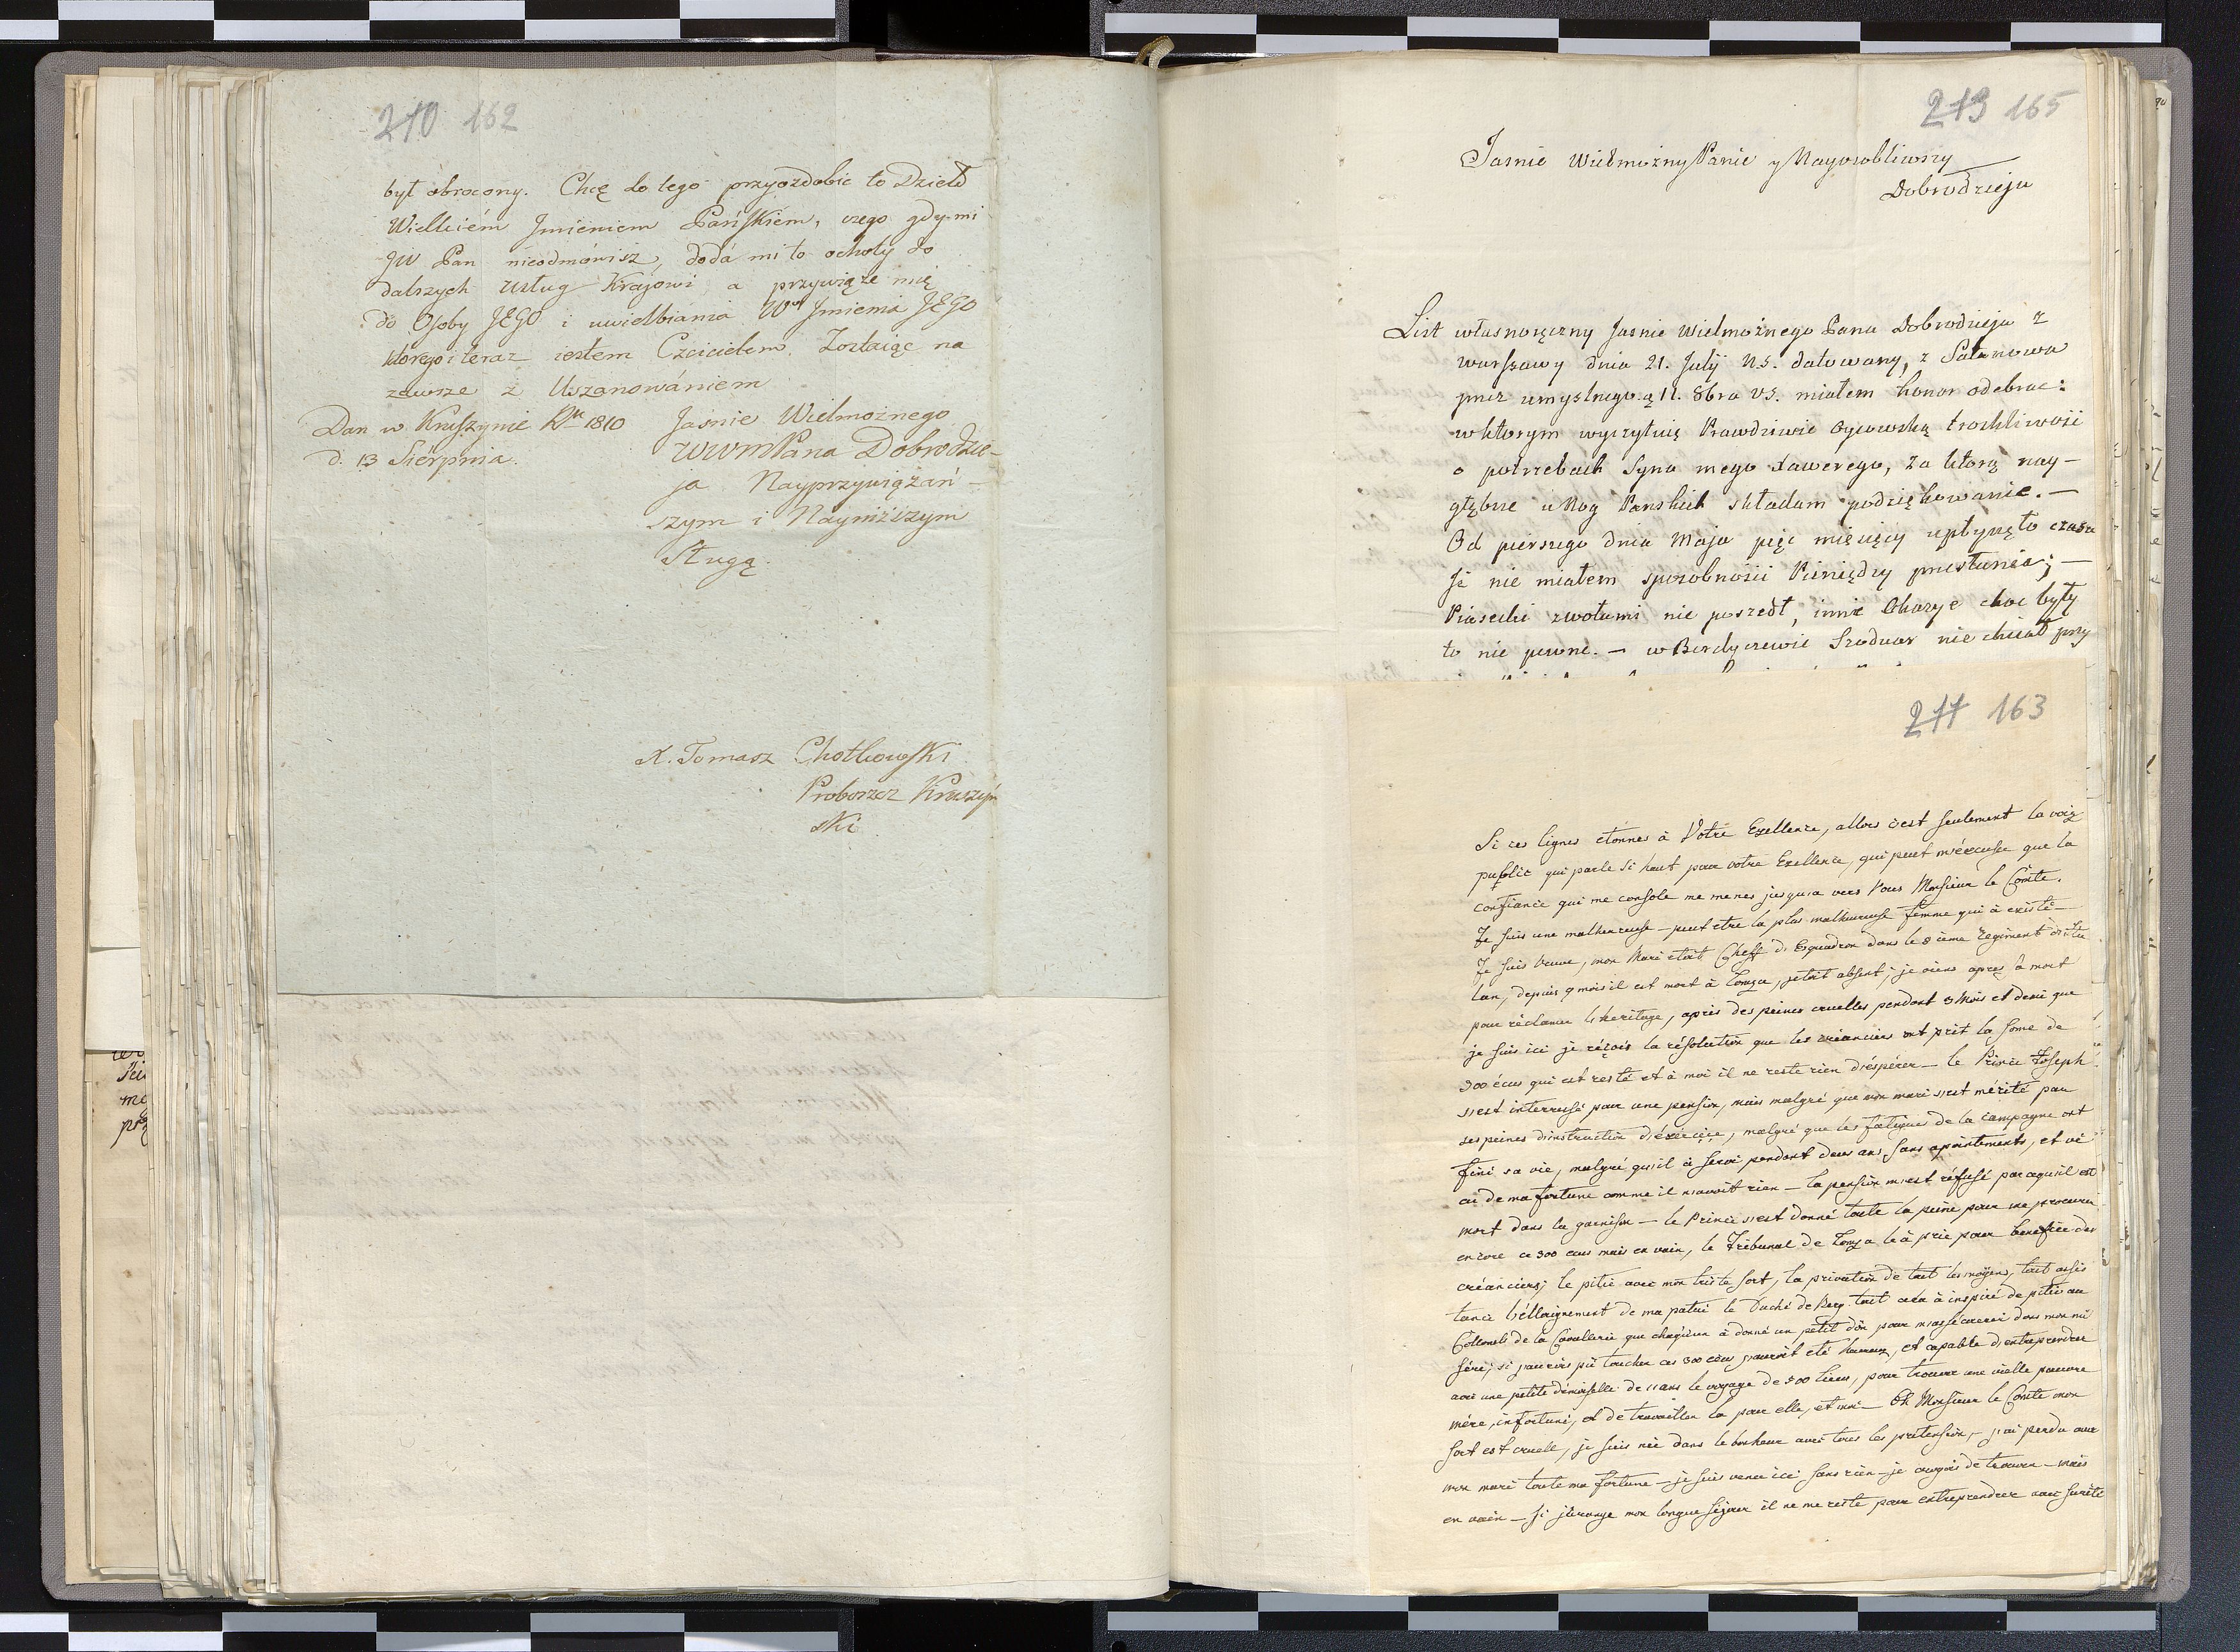 210 162
był obrocony. Chcę do tego przyozdobic to Dzieło
Wielkiém Jmieniem Pańskiém, czego gdy mi
JW Pan nieodmówisz, dodá mi to ochoty do
dalszych usług Krajowi a przywiąże mię
do Osoby JEGO i uwielbiania Jmienia JEGO
ktorego i teraz iestem Czcicielem. Zostaiąc na
zawsze z Uszanowániem
Dan w Kruszynie Rku 1810 Jasnie Wielmożnego
d. 13 Sierpnia. WWMPana Dobrodzie-
ja Nayprzywiązań-
szym i Nayniższym
Sługą.
X. Tomasz Chotkowski
Proboszcz Kruszyń
ski
213 165
Jasnie Wielmożny Panie y Nayosobliwszy
Dobrodzieju
List własnoręczny Jasnie Wielmożnego Pana Dobrodzieja z
Warszawy dnia 21. Julÿ n.s. datowany, z Satanowa
przez umyslnego a 11. 8bra v.s. miałem honor odebrac:
w ktorym wyczytuię Prawdziwie Oycowską troskliwość
o potrzebach Syna mego Xawerego, za ktorą nay-
głębsze u Nog Panskich składam podziękowanie. —
Od pierszego dnia Maja pięć miesięcy upłynęło czasu
Ja nie miałem sposobności Pieniędzy przesłania; —
Piasecki z wołami nie poszedł, innie Okazye choc były
to nie pewne. — w Berdyczewie Szodwar nie chciał przy
211 163
Si ces lignes etonnes à Votre Exellence, allors c'est seulement la voix
publie qui parle si haut pour votre Exellence, qui peut m'excuser que la
confiance qui me console me menes jusqu'a vers Vous Monsieur le Comte.
Je suis une malheureuse — peut etre la plus malheureuse femme qui à existé —
Je suis Veuve, mon Mari etoit Cheff d'Esquadron dans le 8 ième Regiment d'Hu
lan, depuis 9 mois il est mort à Lomza, j'etoit absent; je viens apres sa mort
pour réclamer l'heritage, après des peines cruelles pendant 3 Mois et demi que
je suis ici je réçois la résolution que les créanciers ont prit la some de
300 écus qui est resté et à moi il ne reste rien d'éspérer — le Prince Joseph
s'est interressé pour une pension, mais malgré que mon mari s'est mérité par
ses peines d'instruction d'éxercice, malgré que les fatigues de la campagne ont
fini sa vie, malgré qu'il à servi pendant deux ans sans apointements, et vé
cu de ma fortune comme il n'avoit rien — la pension m'est réfusé parcequ'il est
mort dans la garnison — le Prince s'est donné toute la peine pour me procurer
encore ce 300 ecus mais en vain, le Tribunal de Lomza l'à prie pour benefice des
créanciers; le pitie avec mon triste sort, la privation de tout les moÿens, tout assis
tance l'élloignement de ma patrie le Duché de Berg tout cela à inspiré de pitie au
Collonels de la Cavallerie que chaqu'un à donné un petit dôn pour m'assécurer dans mon mi
sére; si j'aurois pû toucher ces 300 ecus j'auroit eté heureux, et capable d'entreprendre
avec une petite démoiselle de 11 ans le voyage de 500 lieus, pour trouver une vielle pauvre
mère, infortuné, et de travailler la pour elle, et moi — Oh Monsieur le Comte mon
sort est cruelle, je suis née dans le bonheur avec tous les prétension, — j'ai perdu avec
mon mari toute ma fortune — je suis venu ici sans rien — je croyois de trouver — mais
en vain — si j'érrange mon longue séjour il ne me reste pour entreprendrer avec sureté